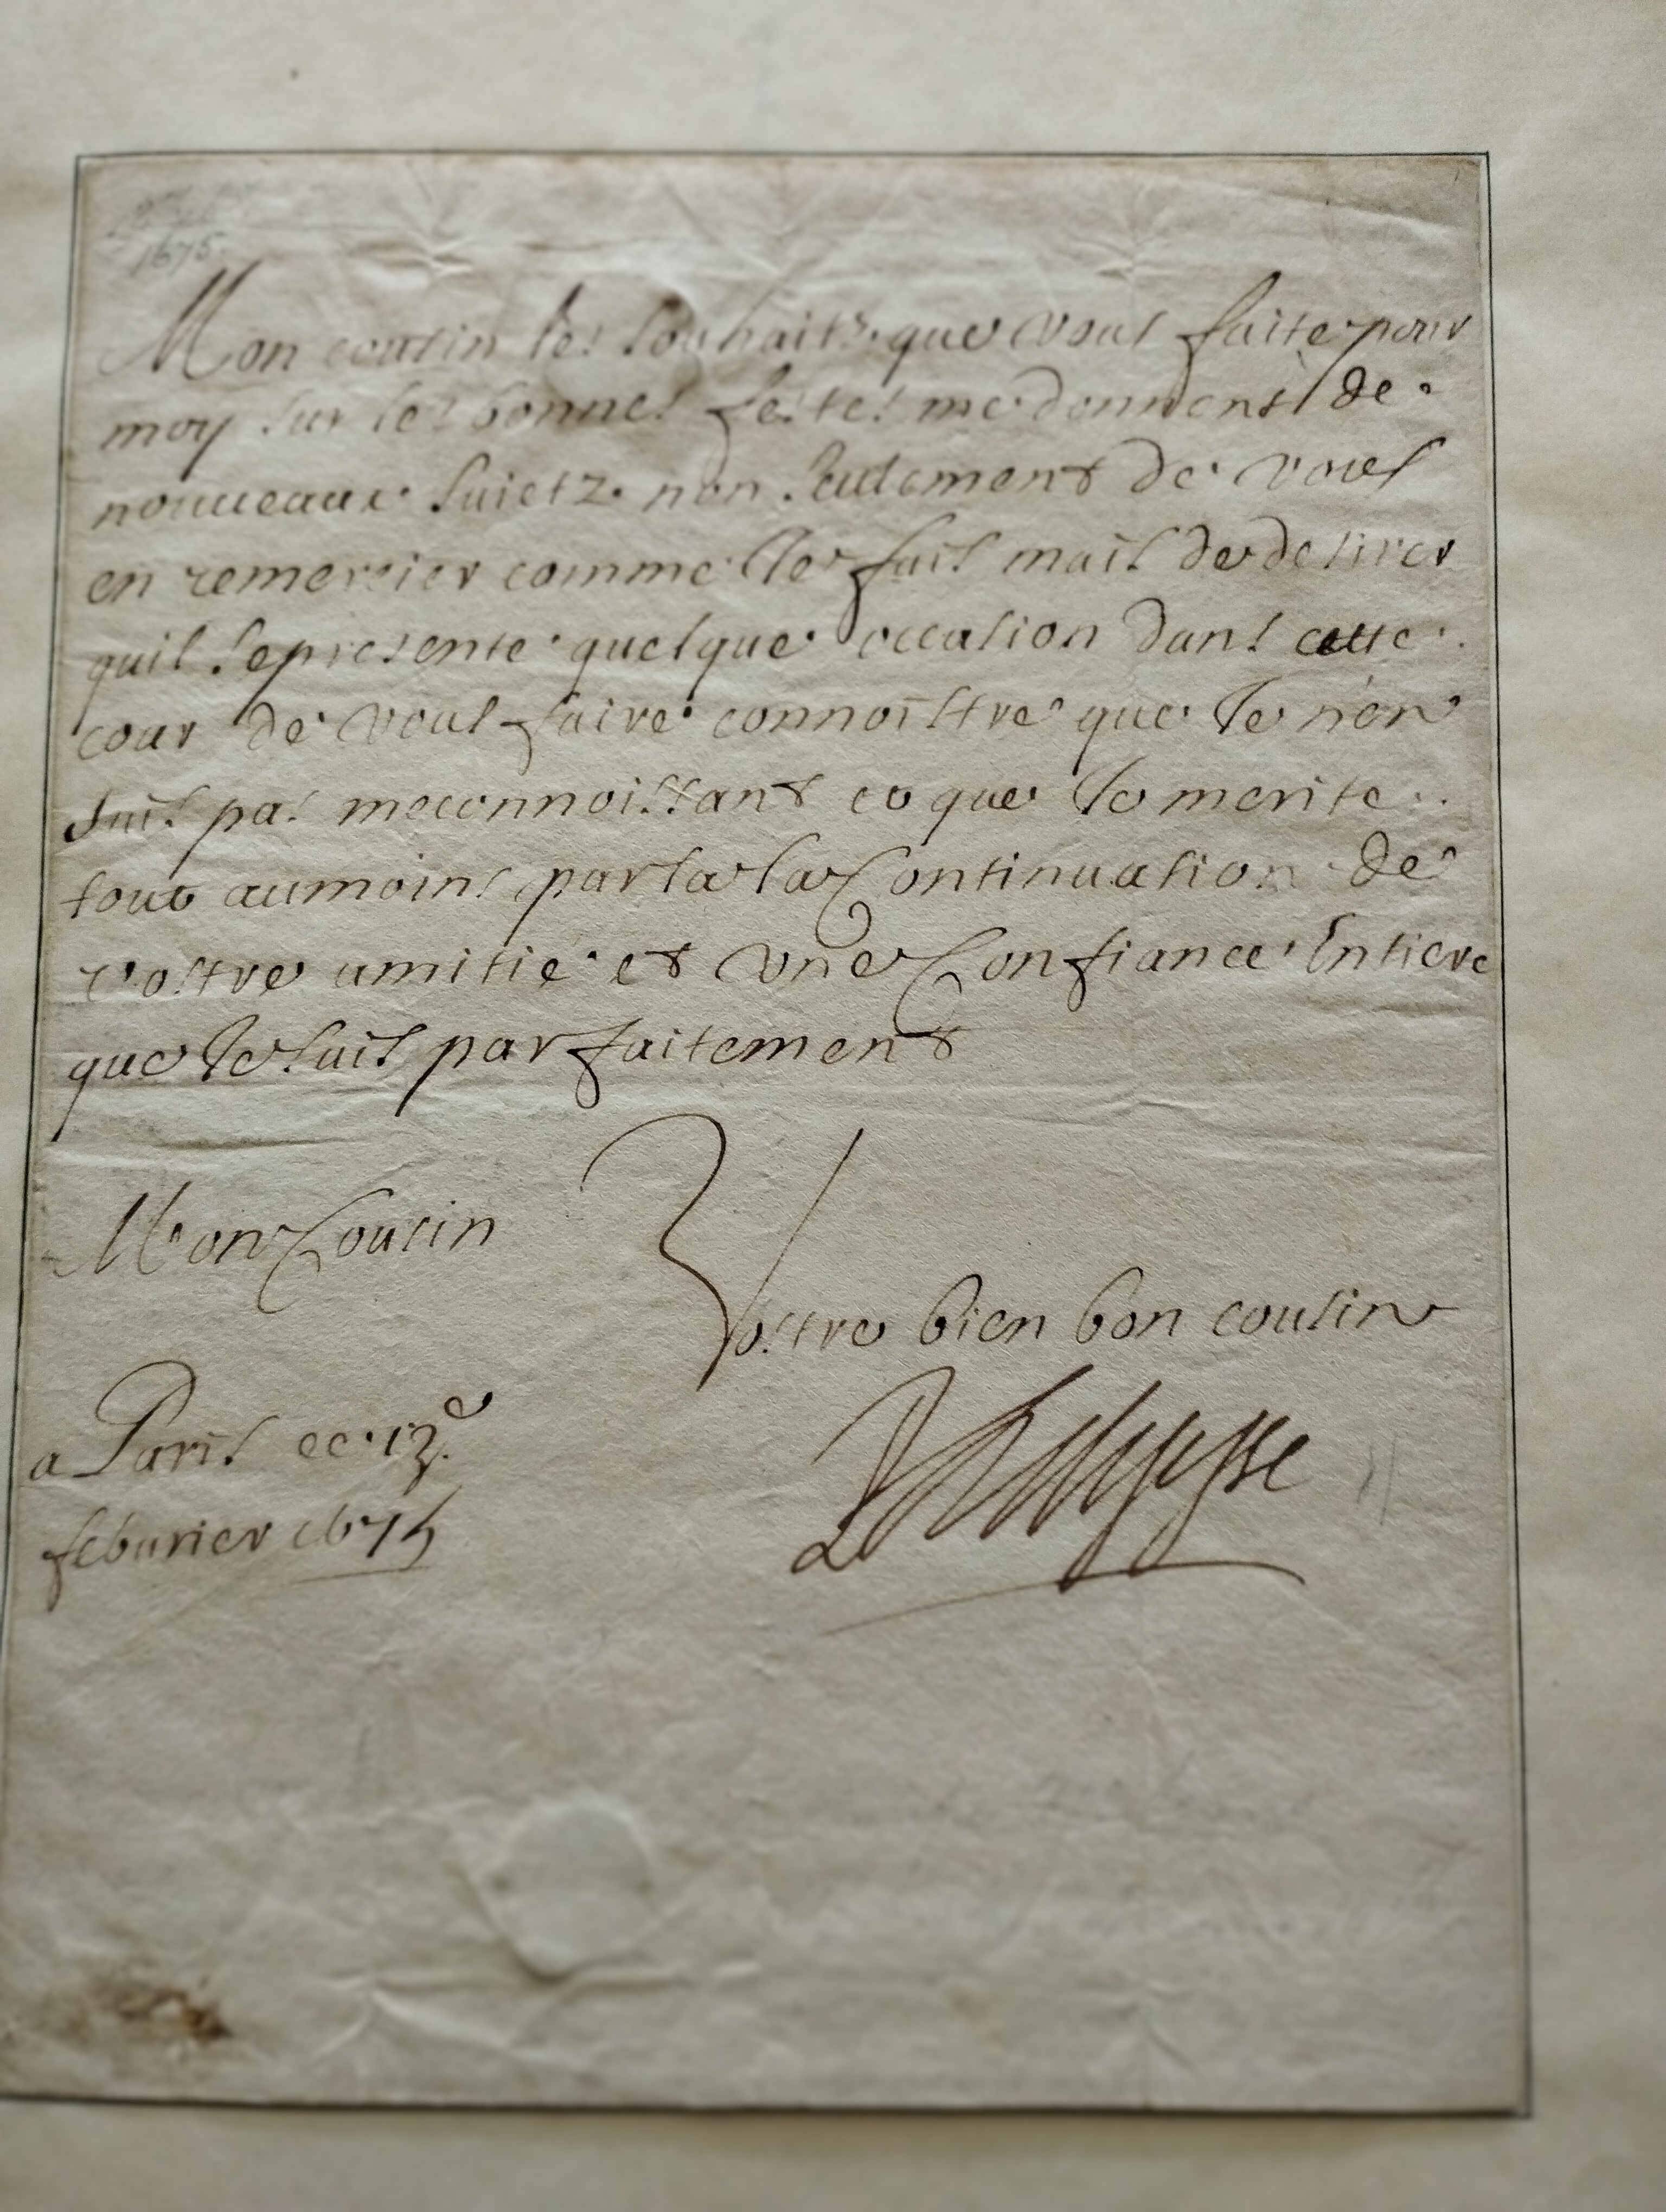 1675.
Mon cousin les souhaits que vous faite pour
moy sur les bonnes festes me donnent de
nouueaux suietz non seulement de vous
en remercier comme Ie fais mais de desirer
quil se presente quelque occasion dans cette
cour de vous faire connoistre que Ie nen
suis pas meconnoissant et que Ie merite
tout aumoins par la la Continuation de
vostre amitié et vne Confiance Entiere
que Ie suis parfaitement
Mon Cousin
Vostre bien bon cousin
a Paris ce 12e
feburier 1675
Philippe